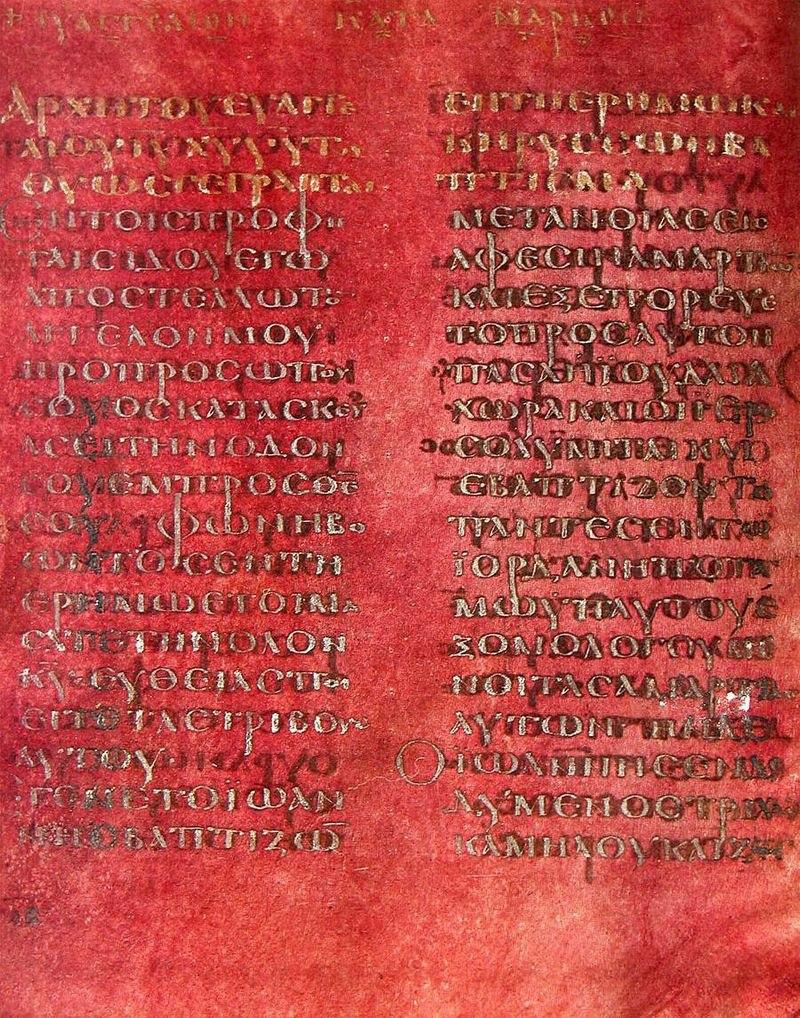 ΕΥΑΓΓΕΛΙΟΝ ΚΑΤΑ ΜΑΡΚΟΝ
ΑΡΧΗΤΟΥΕΥΑΓΓΕ
ΛΙΟΥΙ̅Υ̅Χ̅Υ̅Υ̅Υ̅ΤΟΥ
Θ̅Υ̅ΩϹΓΕΓΡΑΠΤΑΙ
ΕΝΤΟΙϹΠΡΟΦΗ
ΤΑΙϹΙΔΟΥΕΓΩ
ΑΠΟϹΤΕΛΛΩΤΟ̅
ΑΓΓΕΛΟΝΜΟΥ
ΠΡΟΠΡΟϹΩΠΟΥ
ϹΟΥΟϹΚΑΤΑϹΚΕΥ
ΑϹΕΙΤΗΝΟΔΟΝ
ϹΟΥΕΜΠΡΟϹΘΕ̅
ϹΟΥΦΩΝΗΒΟ
ΩΝΤΟϹΕΝΤΗ
ΕΡΗΜΩΕΤΟΙΜΑ
ϹΑΤΕΤΗΝΟΔΟΝ
Κ̅Υ̅ΕΥΘΕΙΑϹΠΟΙ
ΕΙΤΕΤΑϹΤΡΙΒΟΥϹ
ΑΥΤΟΥ
ΕΓΕΝΕΤΟΪΩΑΝ
ΝΗϹΒΑΠΤΙΖΩ̅
ΕΝΤΗΕΡΗΜΩΚΑΙ
ΚΗΡΥϹϹΩΝΒΑ
ΠΤΙϹΜΑ
ΜΕΤΑΝΟΙΑϹΕΙϹ
ΑΦΕϹΙΝΑΜΑΡΤΙΩ̅
ΚΑΙΕΞΕΠΟΡΕΥΕ
ΤΟΠΡΟϹΑΥΤΟΝ
ΠΑϹΑΗΪΟΥΔΑΙΑ
ΧΩΡΑΚΑΙΟΙΪΕΡΟ
ϹΟΛΥΜΙΤΑΙΚΑΙ
ΕΒΑΠΤΙΖΟΝΤΟ
ΠΑΝΤΕϹΕΝΤΩ
ΪΟΡΔΑΝΗΠΟΤΑ
ΜΩΥΠΑΥΤΟΥΕ
ΞΟΜΟΛΟΓΟΥΜΕ
ΝΟΙΤΑϹΑΜΑΡΤΙΑϹ
ΑΥΤΩΝ
ΟΪΩΑΝΝΗϹΕΝΔΕ
ΔΥΜΕΝΟϹΤΡΙΧΑϹ
ΚΑΜΗΛΟΥΚΑΙΖΩ